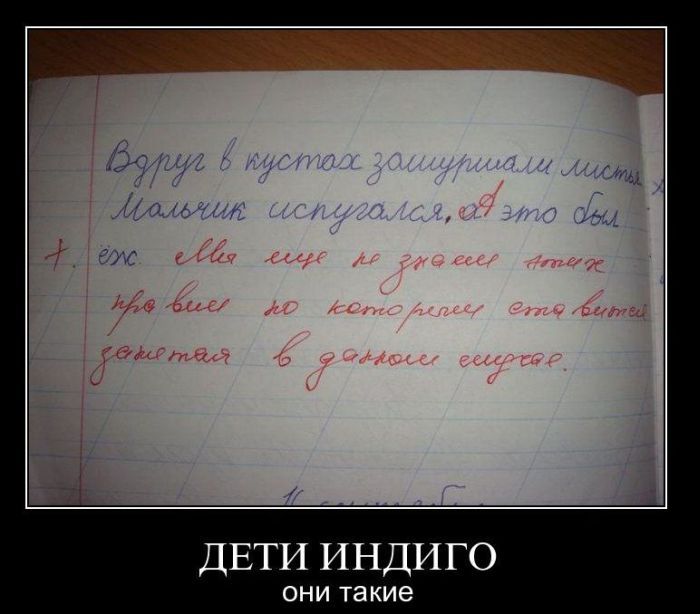 Вдруг в кустах зашуршали листья
Мальчик испугался, а А это был
ёж. Мы еще не знаем этих
правил по которым ставится
запятая в данном случае.
ДЕТИ ИНДИГО
они такие